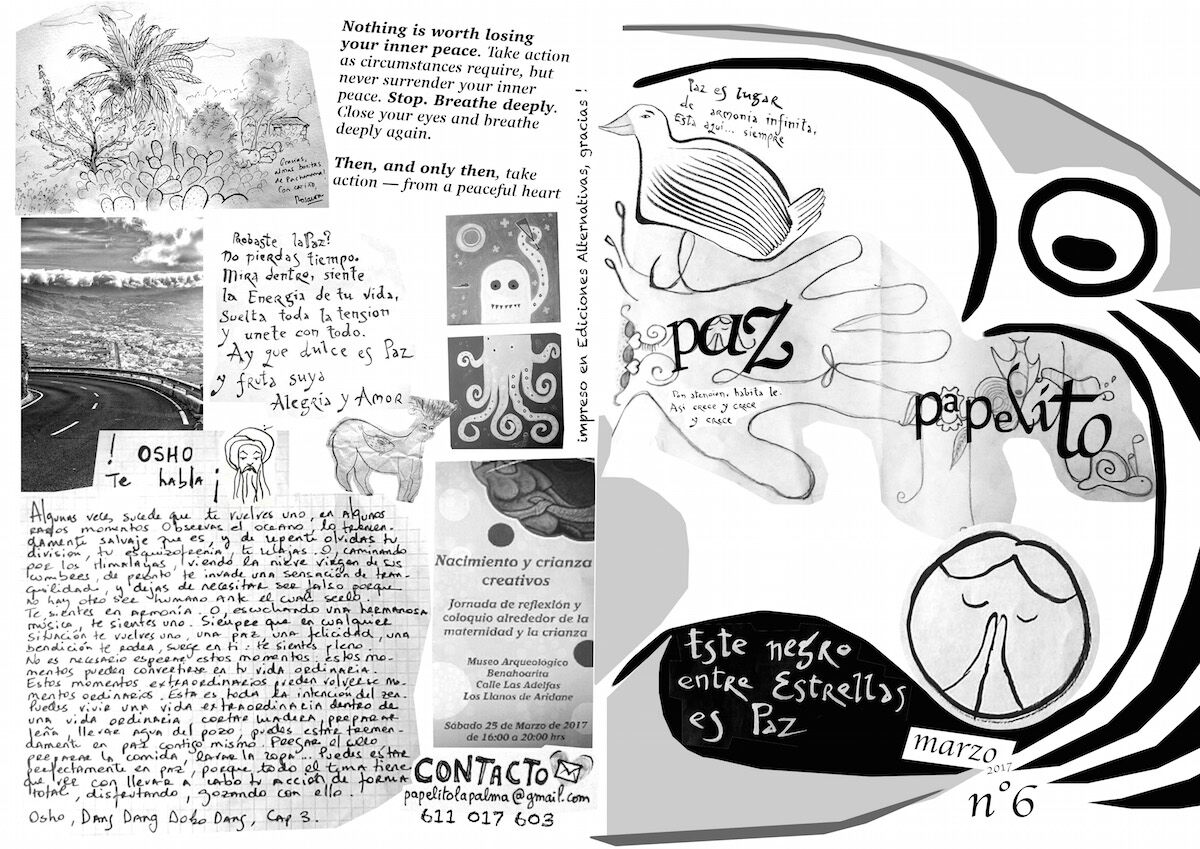 Nothing is worth losing
your inner peace. Take action
as circumstances require, but
never surrender your inner
peace. Stop. Breathe deeply.
Close your eyes and breathe
deeply again.
Then, and only then, take
action — from a peaceful heart
Gracias,
almas bonitas
de Pachamama!
Con cariño,
impreso en Ediciones Alternativas, gracias !
Probaste la Paz?
No pierdas tiempo.
Mira dentro, siente
la Energia de tu vida,
Suelta toda la tension
y unete con todo.
Ay que dulce es Paz
y fruta suya
Alegria y Amor
! OSHO
Te habla ¡
Algunas veces sucede que te vuelves uno, en algunos
raros momentos. Observas el oceano, lo tremen-
damente salvaje que es, y de repente olvidas tu
division, tu esquizofrenia, te relajas. O, caminando
por los Himalayas, viendo la nieve virgen de sus
cumbres, de pronto te invade una sensación de tran-
quilidad, y dejas de necesitar ser falso porque
no hay otro ser humano ante el cual serlo.
Te sientes en armonía. O, escuchando una hermosa
música, te sientes uno. Siempre que en cualquier
situación te vuelves uno, una paz, una felicidad, una
bendición te rodea, surge en ti. te sientes pleno.
No es necesario esperar estos momentos. estos mo-
mentos pueden convertirse en tu vida ordinaria.
Estos momentos extraordinarios pueden volverse mo-
mentos ordinarios. Esta es toda la intención del zen.
Puedes vivir una vida extraordinaria dentro de
una vida ordinaria cortar madera, preparar
leña, llevar agua del pozo, puedes estar tremen-
damente en paz contigo mismo. Fregar el suelo
preparar la comida, lavar la ropa... Puedes estar
perfectamente en paz, porque todo el tema tiene
que ver con llevar a cabo tu acción de forma
total, disfrutando, gozando con ello.
Osho, Dang Dang Doko Dang, Cap 3.
Nacimiento y crianza
creativos
Jornada de reflexión y
coloquio alrededor de la
maternidad y la crianza
Museo Arqueológico
Benahoarita
Calle Las Adelfas
Los Llanos de Aridane
Sábado 25 de Marzo de 2017
de 16:00 a 20:00 hrs
CONTACTO
papelitolapalma@gmail.com
611 017 603
Paz es lugar
de armonia infinita,
Esta aqui... siempre
paz
Pon atencion, habita le.
Asi crece y crece
y crece
papelito
Este negro
entre Estrellas
es Paz
marzo
2017
nº6